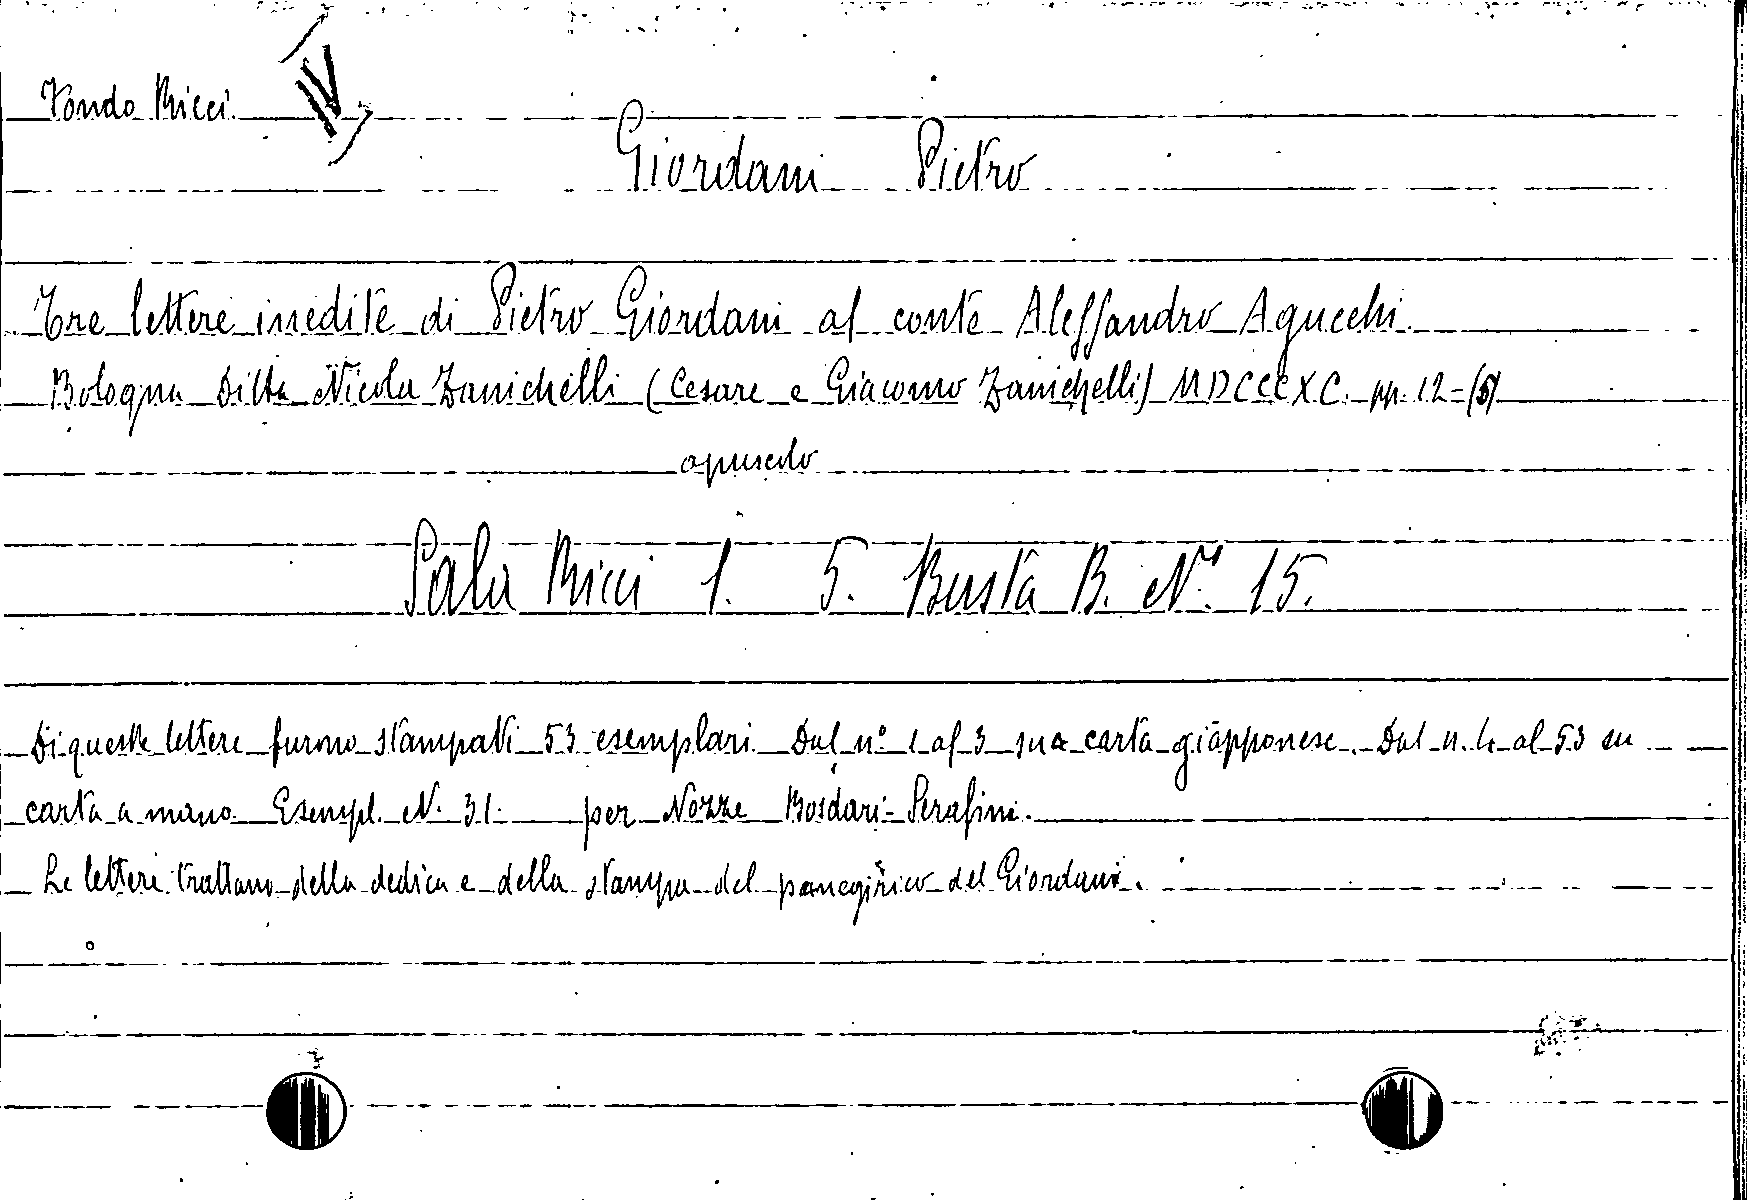 Fondo Ricci. IV
Giordani Pietro
Tre lettere inedite di Pietro Giordani al conte Alessandro Agucchi.
Bologna Ditta Nicola Zanichelli (Cesare e Giacomo Zanichelli) MDCCCXC. pp. 12=(3)
opuscolo
Sala Ricci 1. 5. Busta B. N.° 15.
Di queste lettere furono stampati 53 esemplari. Dal n° 1 al 3 su carta giapponese. Dal n. 4 al 53 su
carta a mano. Esempl. N. 31. per Nozze Bosdari-Serafini.
Le lettere trattano della dedica e della stampa del panegirico del Giordani.